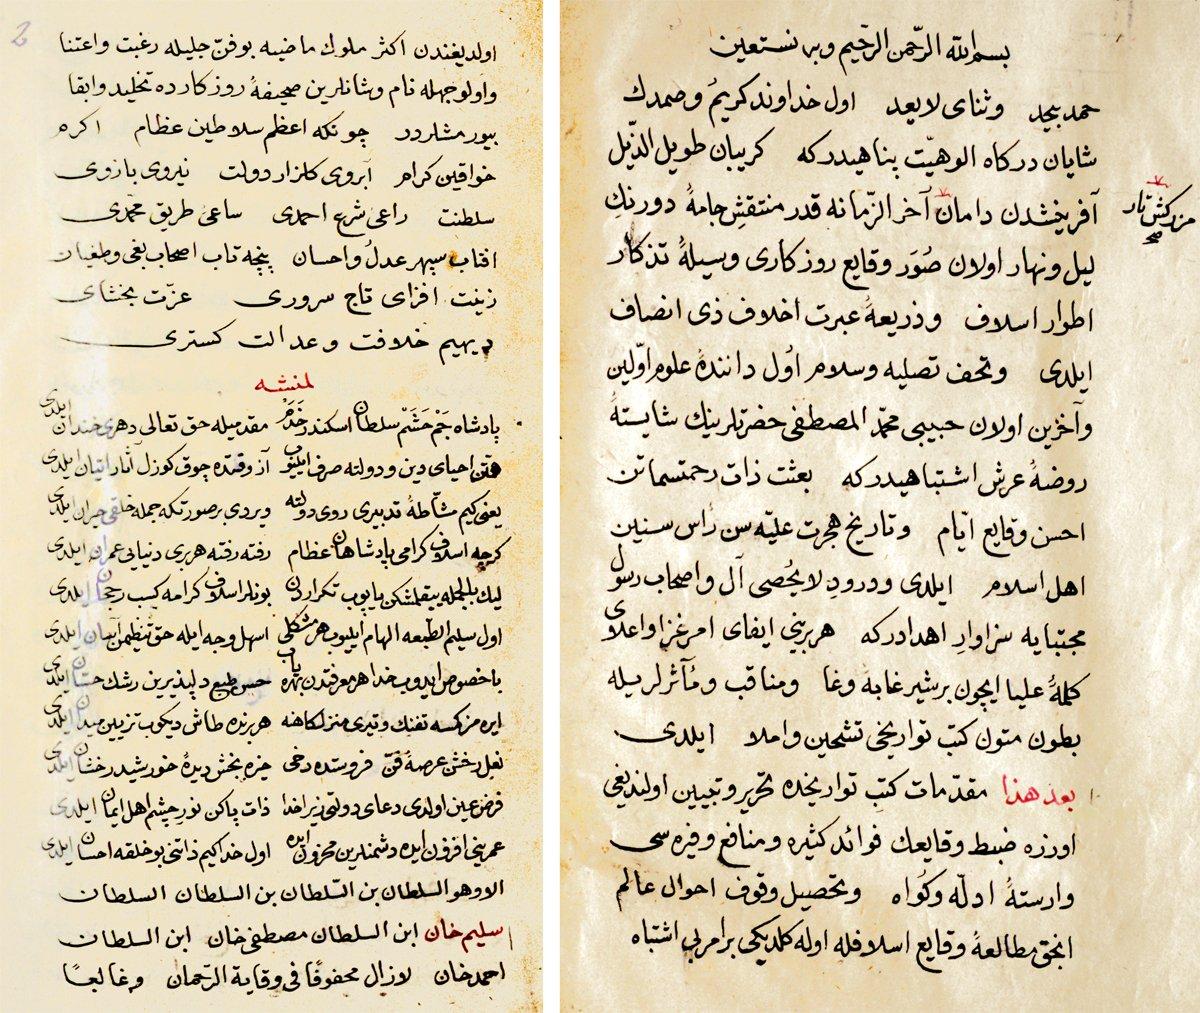 بسم الله الرّحمن الرّحيم وبه نستعين
حمد بيحد وثنای لايعد اول خداوند كريمُ وصمدك
شايان درگاه الوهيّت پناهيدركه كريبان طويل الذّيل
آفرينشدن دامان آخر الزّمانه قدر منتقشِ جامهٔ دورنكِ
مزركش تار
صح
ليل ونهار اولان صُوَر وقايع روزكاری وسيلهٔ تذكار
اطوار اسلاف وذريعهٔ عبرت اخلاف ذی انصاف
ايلدی وتحف تصليه وسلام اول دانندهٔ علوم اوّلين
وآخرين اولان حبيبی محمّد المصطفی حضرتلرينك شايستهٔ
روضهٔ عرش اشتباهيدركه بعثت ذات رحمتسماتن
احسن وقايع ايّام وتاريخ هجرت عليّه سن رأس سنين
اهل اسلام ايلدی ودرودِ لايحُصی آل واصحاب رسول
مجتبايه سزاوارِ اهدادركه هربرينی ايفای امر غزا واعلای
كلمهٔ عليا ايچون برشير غابهٔ وغا ومناقب ومآثرلريله
بطون متون كتب تواريخی تشحين واملا ايلدی
بعد هذا مقدّمات كتب تواريخده تحرير وتبيين اولنديغی
اوزره ضبط وقايعك فوائد كثيره ومنافع وفيره سی
وارستهٔ ادلّه وكُواه وتحصيل وقوف احوال عالم
انجق مطالعهٔ وقايع اسلافله اوله كلديكی برامر بی اشتباه
2
اولديغندن اكثر ملوك ماضيه بوفنّ جليله رغبت واعتنا
واولوجهله نام وشانلرين صحيفهٔ روزكارده تخليد وابقا
بيورمشلردر چونكه اعظم سلاطين عظام اكرم
خواقين كرام آبروی كلزار دولت نيروی بازوی
سلطنت راعی شرع احمدی ساعی طريق محمّدی
افتاب سپهر عدل واحسان پنجه تاب اصحاب بغی وطغيان
زينت افزای تاج سروری عزّت بخشای
ديهيم خلافت وعدالت كستری
لمنشئه
پادشاه جَم حَشَم سلطان اسكندر خَدَم مقدميله حق تعالی دهری خندان ايلدی
احيای دين ودولته صرف ايليوب آز وقتده چوق كوزل آثار اتيان ايلدی
يعنی كيم مشّاطهٔ تدبيری روی دولته ويردی بر صورتكه جمله خلقی حيران ايلدی
كرچه اسلاف كرامی پادشاهان عظام رفته رفته هربری دنيايی عمران ايلدی
ليك بالجمله بونلر اسلاف كرامه كسب رجحان ايلدی
اول سليم الطّبعه الهام ايليوب هر مشكلی اسهل وجه ايله حق تنظيمن آسان ايلدی
باخصوص ايدوب خدا هر معرفتدن بهره ياب حسن طبع دلپذيرين رشك حسّان ايلدی
ايره مز كيمسه تفنك وتيری منزلكاهنه هر برنده طاش ديكوب تزيين ميدان ايلدی
نعل رخشن عرصهٔ فنّ فروستده دخی خيره بخش ديدهٔ خورشيد رخشان ايلدی
فرض عين اولدی دعای دولتی زيرا خدا ذات پاكن نور چشم اهل ايمان ايلدی
عمرينی افزون ايده دشمنلرين محزون ايده اول خدا كيم ذاتنی بو خلقه احسان ايلدی
الا وهو السلطان بن السّلطان بن السلطان السلطان
سليم خان ابن السلطان مصطفی خان ابن السلطان
احمد خان لازال محفوفًا فی وقاية الرّحمان وغالبًا